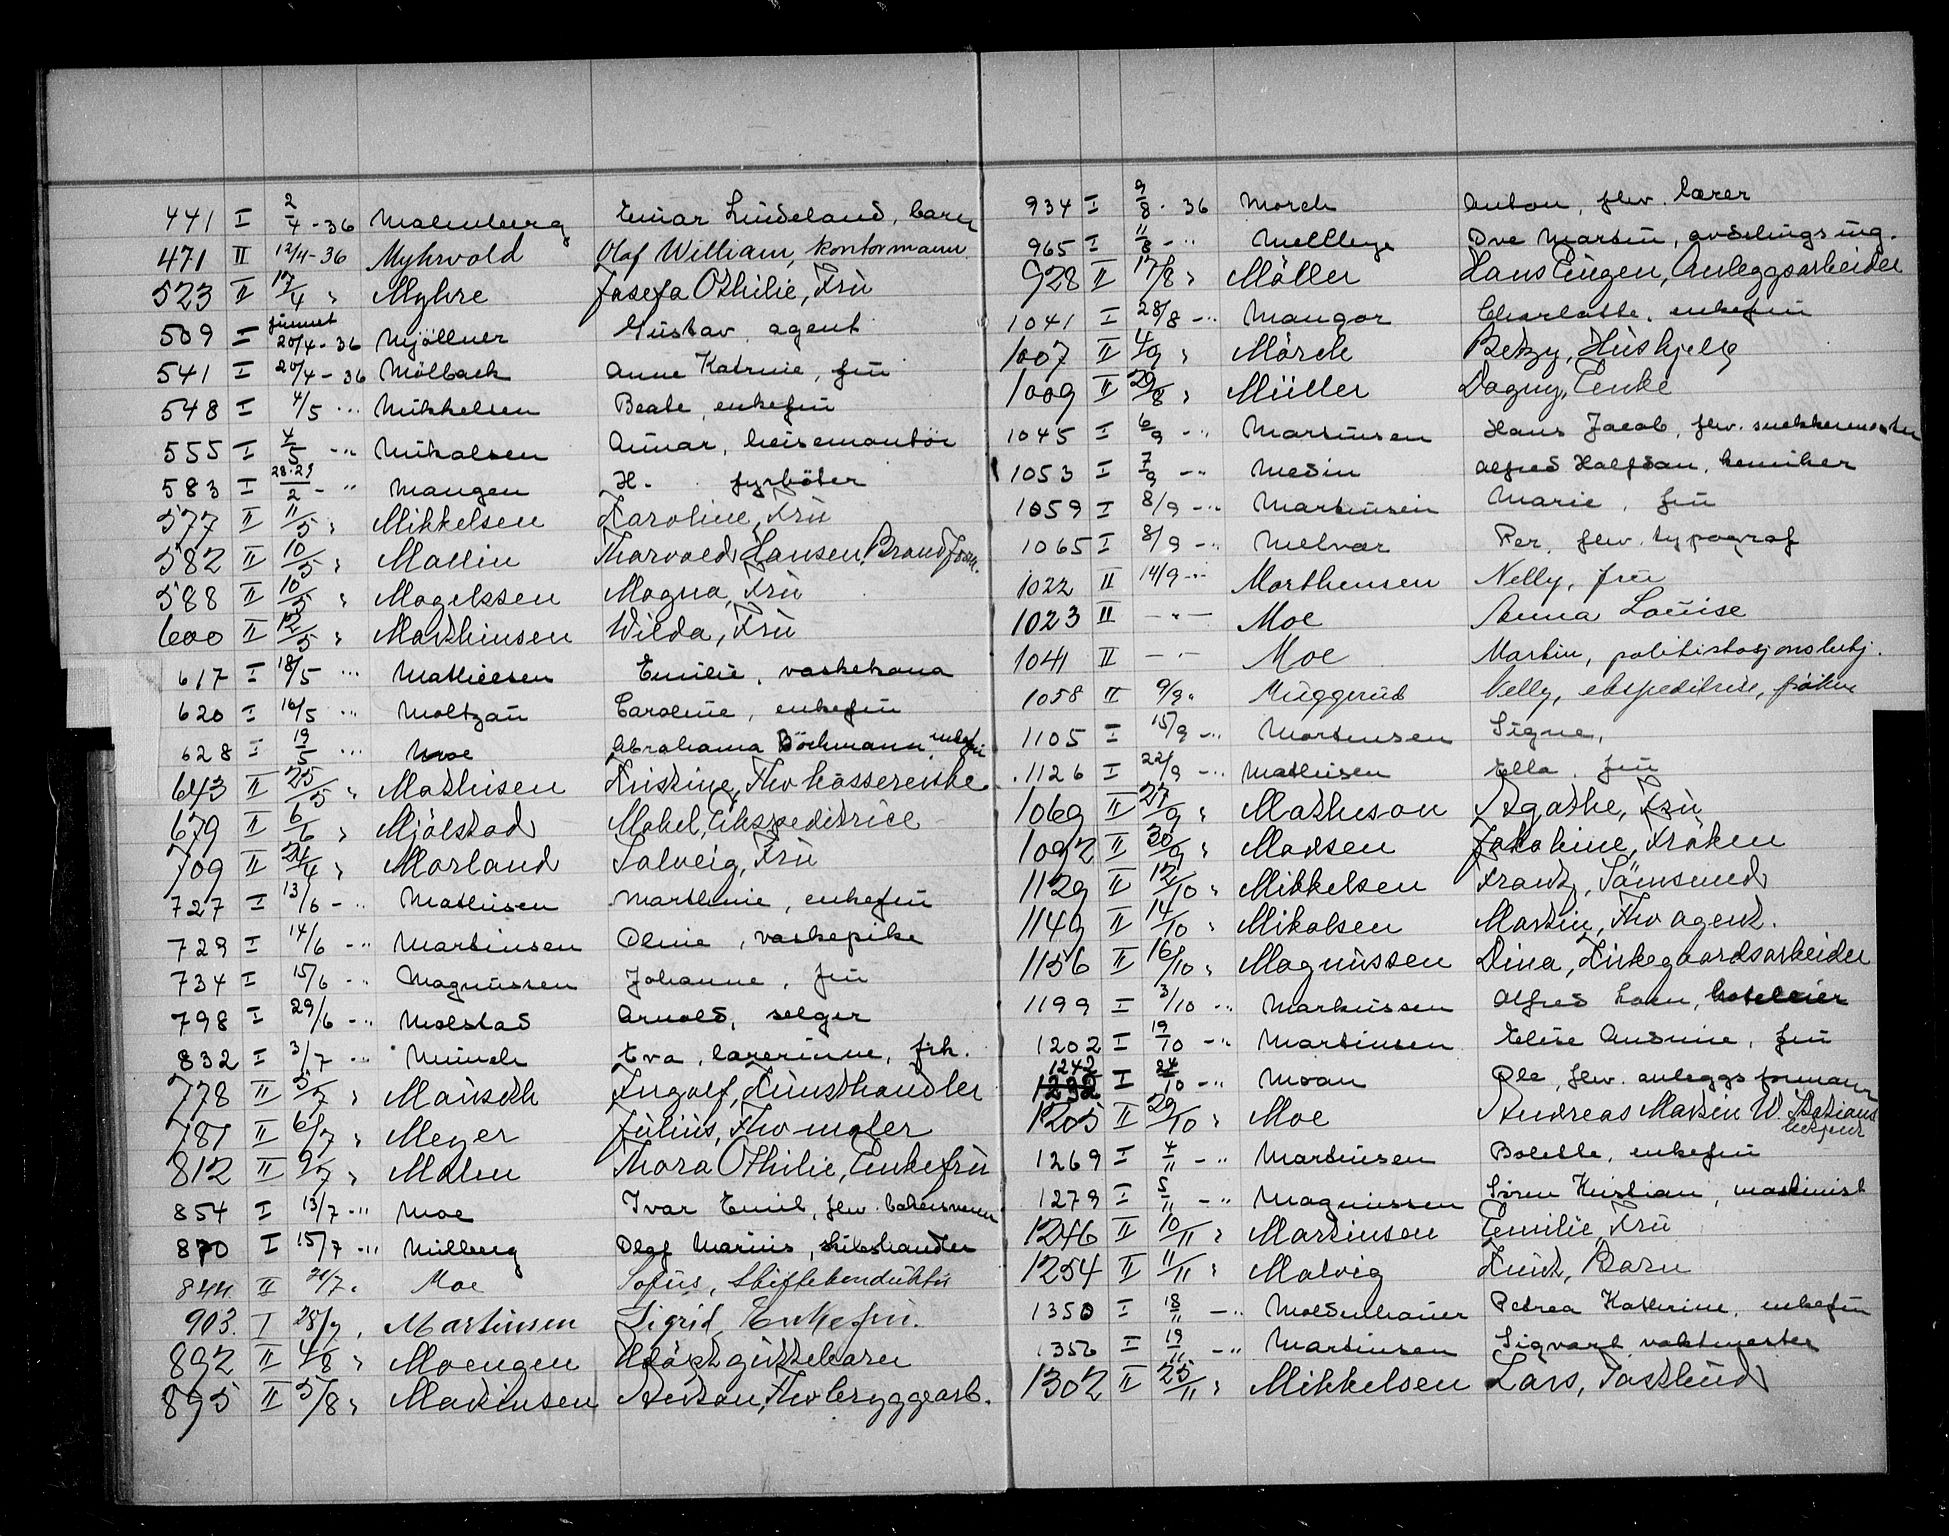 441 I 2/4-36 Malmberg Einar Lindeland, barn
471 II 12/4-36 Myhrvold Olaf William, kontormann
523 II 17/4 " Myhre Josefa Othilie, Fru
509 I funnet 20/4-36 Mjöllner Gustav, agent
541 I 20/4-36 Mölback Anne Katrine, fru
548 I 4/5 -"- Mikkelsen Beate, enkefru
555 I 4/5 -"- Mikalsen Einar, heisemontör
583 I 28-29/2 -"- Mangen H. fyrböter
577 II 11/5 " Mikkelsen Karoline, Fru
582 II 10/5 " Mallin Thorvald Hansen, Brandform.
588 II 10/5 " Magelssen Magna, Fru
600 II 12/5 " Mathinsen Wilda, Fru
617 I 18/5 -"- Mathiesen Emilie, vaskekona
620 I 16/5 -"- Moltzau Caroline, enkefru
628 I 19/5 -"- Moe Abrahama Böckmann, enkefru
643 II 25/5 " Mathisen Kristine, Fhv kassererske
679 II 6/6 " Mjölstad Mabel, Ekspeditrice
709 II 24/4 " Morland Solveig, Fru
727 I 13/6 -"- Mathisen Marthinie, enkefru
729 I 14/6 -"- Martinsen Oline, vaskepike
734 I 15/6 -"- Magnussen Johanne, fru
798 I 29/6 -"- Molstad Arnold, selger
832 I 3/7 -"- Münch Eva, lærerinne, frk.
778 II 5/7 " Mausch Ingolf, Kunsthandler
787 II 6/7 " Meyer Julius, Fhv maler
812 II 9/7 " Thora Othilie, Enkefru
854 I 13/7 -"- Moe Ivar Emil, fhv. bakersvenn
870 I 15/7 -"- Milberg Olaf Marius, skibshandler
844 II 21/7 " Moe Sofus,
903. I 28/7 " Martinsen Sigrid, Enkefru.
892 II 4/8 " Moengen Udöpt guttebarn
895 II 5/8 " Martinsen Anton, Fhv bryggearb.
934 I 9/8 - 36 Morch Anton, fhv. lærer
965 I 11/8 -"- Ove Martin, avdelingsing.
928 II 17/8 " Möller Hans Eugen, Anleggsarbeider
1041 I 28/8 -"- Mangor Charlotte, enkefru
1007 II 4/9 " Mörch Betzy, Hushjelp
1009 II 29/8 " Müller Dagny, Enke
1045 I 6/9 -"- Martinsen Hans Jacob, fhv. snekkermester
1053 I 7/9 -"- Medin Alfred Halfdan, kemiker
1059 I 8/9 -"- Martinsen Marie, fru
1065 I 8/9 -"- Melvær Per, fhv. typograf
1022 II 14/9 -"- Marthensen Nelly, fru
1023 II -"- Moe Anna Louise
1041 II -"- Moe Martin, politistasjonsbetj.
1058 II 9/9 " Muggerud Nelly, ekspeditrise, fröken
1105 I 15/9 -"- Mortensen Signe,
1126 I 22/9 -"- Mathisen Ella, fru
1069 II 27/9 " Matheson Agathe, Fru
1092 II 30/9 " Madsen Jakobine, Fröken
1129 II 12/10 " Mikkelsen Frantz, Sömsmed
1149 II 14/10 " Mikalsen Martin, Fhv agent.
1156 II 16/10 " Magnussen Dina, Kirkegaardsarbeider
1199 I 3/10 -"- Markussen Alfred Loen, hoteleier
1202 I 19/10 -"- Martinsen Elise Andrine, fru
1242 1232 I 24/10 -"- Moan Ole, fhv. anleggsformann
1205 II 29/10 " Moe Andreas Martin W. Stasjons betjent
1269 I 4/11 -"- Martinsen Bolette, enkefru
1279 I 5/11 -"- Magnussen Sören Kristian, maskinist
1246 II 10/11 " Martinsen Emilie, Fru
1254 II 11/11 " Malvig Knut, Barn
1350 I 18/11 -"- Moldenhauer Petrea Kathrine, enkefru
1356 I 19/11 -"- Martinsen Sigvart, vaktmester
1302 II 25/11 " Mikkelsen Lars, Postbud